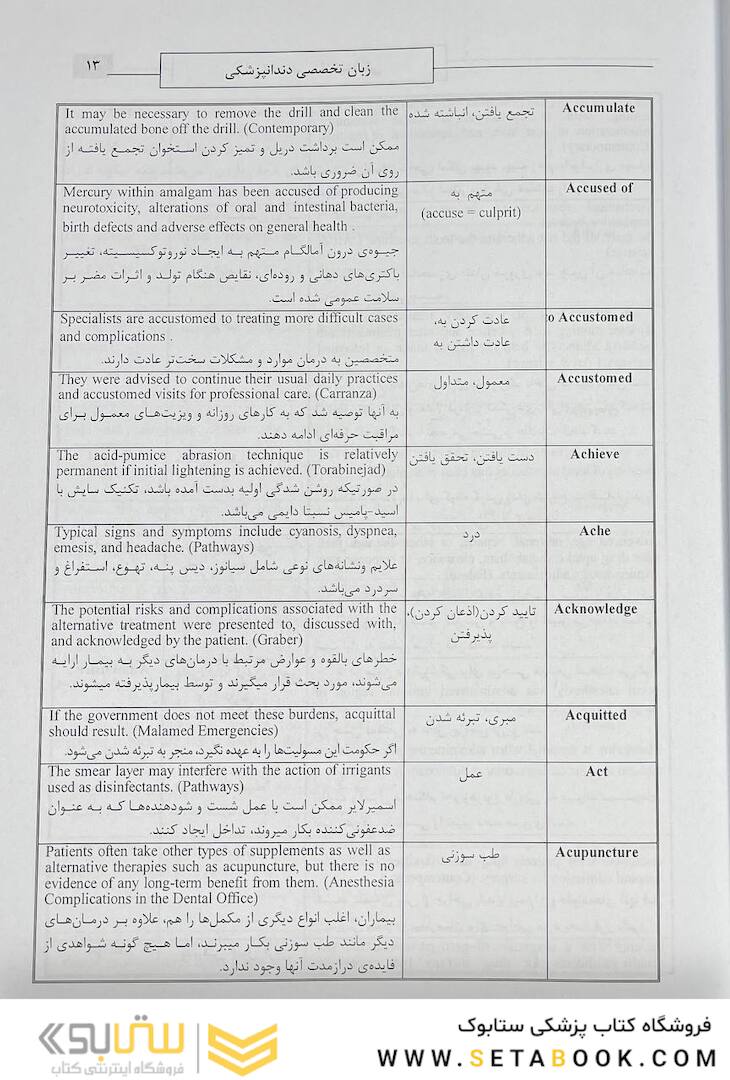 ۱۳
زبان تخصصی دندانپزشکی
Accumulate
تجمع یافتن، انباشته شده
It may be necessary to remove the drill and clean the
accumulated bone off the drill. (Contemporary)
ممکن است برداشت دریل و تمیز کردن استخوان تجمع یافته از
روی آن ضروری باشد.
Accused of
متهم به
(accuse = culprit)
Mercury within amalgam has been accused of producing
neurotoxicity, alterations of oral and intestinal bacteria,
birth defects and adverse effects on general health .
جیوه‌ی درون آمالگام متهم به ایجاد نوروتوکسیسیته، تغییر
باکتری‌های دهانی و روده‌ای، نقایص هنگام تولد و اثرات مضر بر
سلامت عمومی شده است.
to Accustomed
عادت کردن به،
عادت داشتن به
Specialists are accustomed to treating more difficult cases
and complications .
متخصصین به درمان موارد و مشکلات سخت‌تر عادت دارند.
Accustomed
معمول، متداول
They were advised to continue their usual daily practices
and accustomed visits for professional care. (Carranza)
به آنها توصیه شد که به کارهای روزانه و ویزیت‌های معمول برای
مراقبت حرفه‌ای ادامه دهند.
Achieve
دست یافتن، تحقق یافتن
The acid-pumice abrasion technique is relatively
permanent if initial lightening is achieved. (Torabinejad)
در صورتیکه روشن شدگی اولیه بدست آمده باشد، تکنیک سایش با
اسید-پامیس نسبتا دایمی می‌باشد.
Ache
درد
Typical signs and symptoms include cyanosis, dyspnea,
emesis, and headache. (Pathways)
علایم ونشانه‌های نوعی شامل سیانوز، دیس پنه، تهوع، استفراغ و
سردرد می‌باشد.
Acknowledge
تایید کردن(اذعان کردن)،
پذیرفتن
The potential risks and complications associated with the
alternative treatment were presented to, discussed with,
and acknowledged by the patient. (Graber)
خطرهای بالقوه و عوارض مرتبط با درمان‌های دیگر به بیمار ارایه
می‌شوند، مورد بحث قرار میگیرند و توسط بیمارپذیرفته میشوند.
Acquitted
مبری، تبرئه شدن
If the government does not meet these burdens, acquittal
should result. (Malamed Emergencies)
اگر حکومت این مسولیت‌ها را به عهده نگیرد، منجر به تبرئه شدن می‌شود.
Act
عمل
The smear layer may interfere with the action of irrigants
used as disinfectants. (Pathways)
اسمیرلایر ممکن است با عمل شست و شودهنده‌ها که به عنوان
ضدعفونی‌کننده بکار میروند، تداخل ایجاد کنند.
Acupuncture
طب سوزنی
Patients often take other types of supplements as well as
alternative therapies such as acupuncture, but there is no
evidence of any long-term benefit from them. (Anesthesia
Complications in the Dental Office)
بیماران، اغلب انواع دیگری از مکمل‌ها را هم، علاوه بر درمان‌های
دیگر مانند طب سوزنی بکار میبرند، اما هیچ گونه شواهدی از
فایده‌ی درازمدت آنها وجود ندارد.
فروشگاه کتاب پزشکی ستابوک
WWW.SETABOOK.COM
ستابوک
فروشگاه اینترنتی کتاب